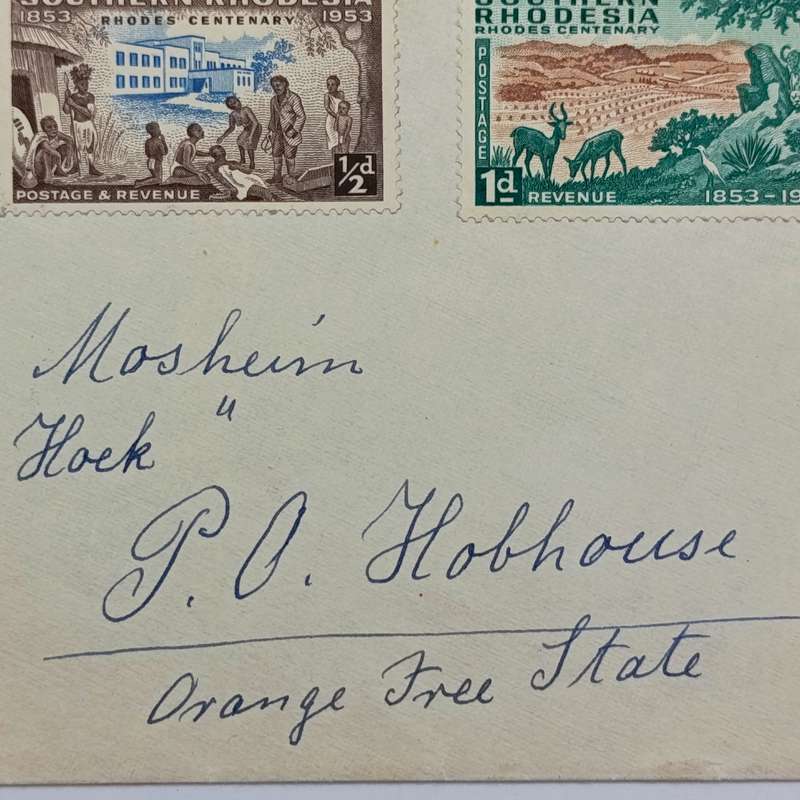 SOUTHERN RHODESIA
1853 RHODES CENTENARY 1953
½d
POSTAGE & REVENUE
SOUTHERN
RHODESIA
RHODES CENTENARY
POSTAGE
1d REVENUE 1853-19
Mosheim
"
Hoek
P. O. Hobhouse
Orange Free State